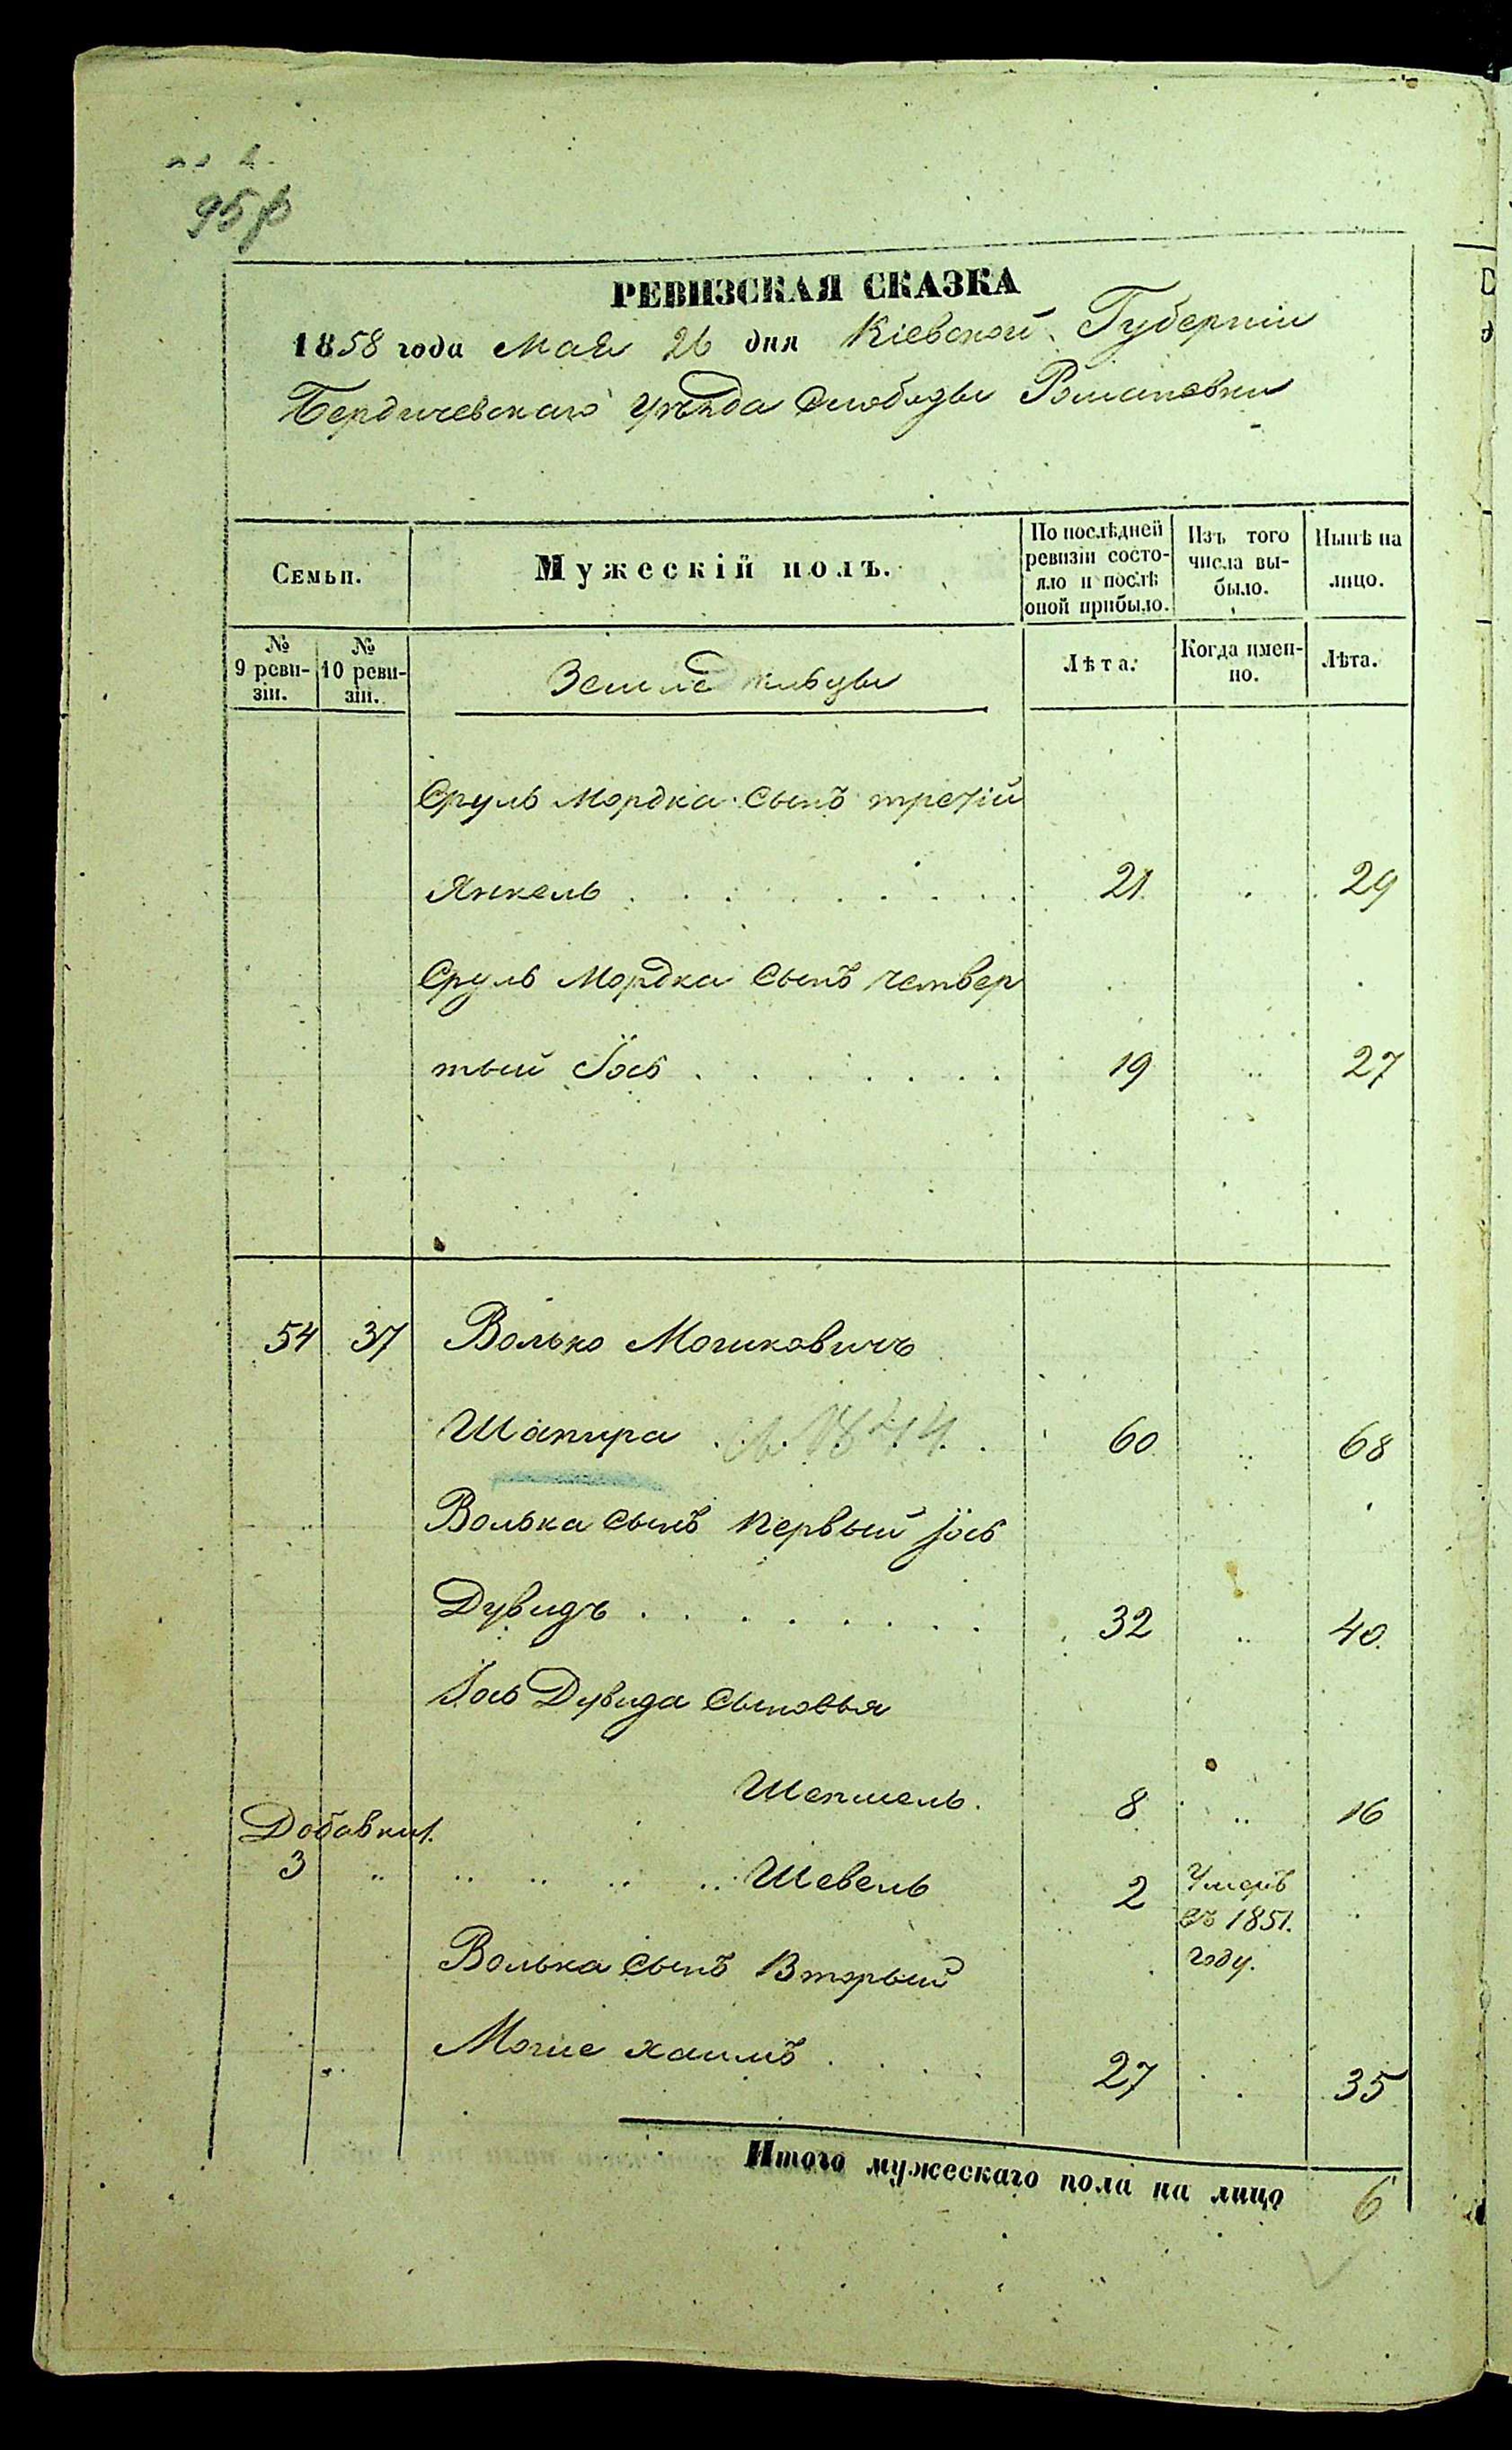 95
РЕВИЗСКАЯ СКАЗКА
1858 года Мая 26 дня Кіевской Губерніи
Бердичевскаго Уѣзда Слободы Романовки
Семьи.
Мужескій полъ.
По послѣдней ревизіи состо-
яло и послѣ
оной прибыло.
Изъ того
числа вы-
было.
Нынѣ на
лицо.
№
9 реви-
зіи.
№
10 реви-
зіи.
Земледѣльцы
Лѣта.
Когда имен-
но.
Лѣта.
Сруль Мордка сынъ третій
Янкель 21 29
Сруль Мордка сынъ четвер
тый Іось 19 27
54 37 Волько Мошковичъ
Шапира 60 68
Волька сынъ первый Іось
Дувидъ 32 40
Іось Дувида сыновья
Шепшель 8 16
Добавки.
3 Шевель 2 Умеръ
въ 1851.
году.
Волька сынъ Вторый
Мошe хаимъ 27 35
Итого мужескаго пола на лицо 6